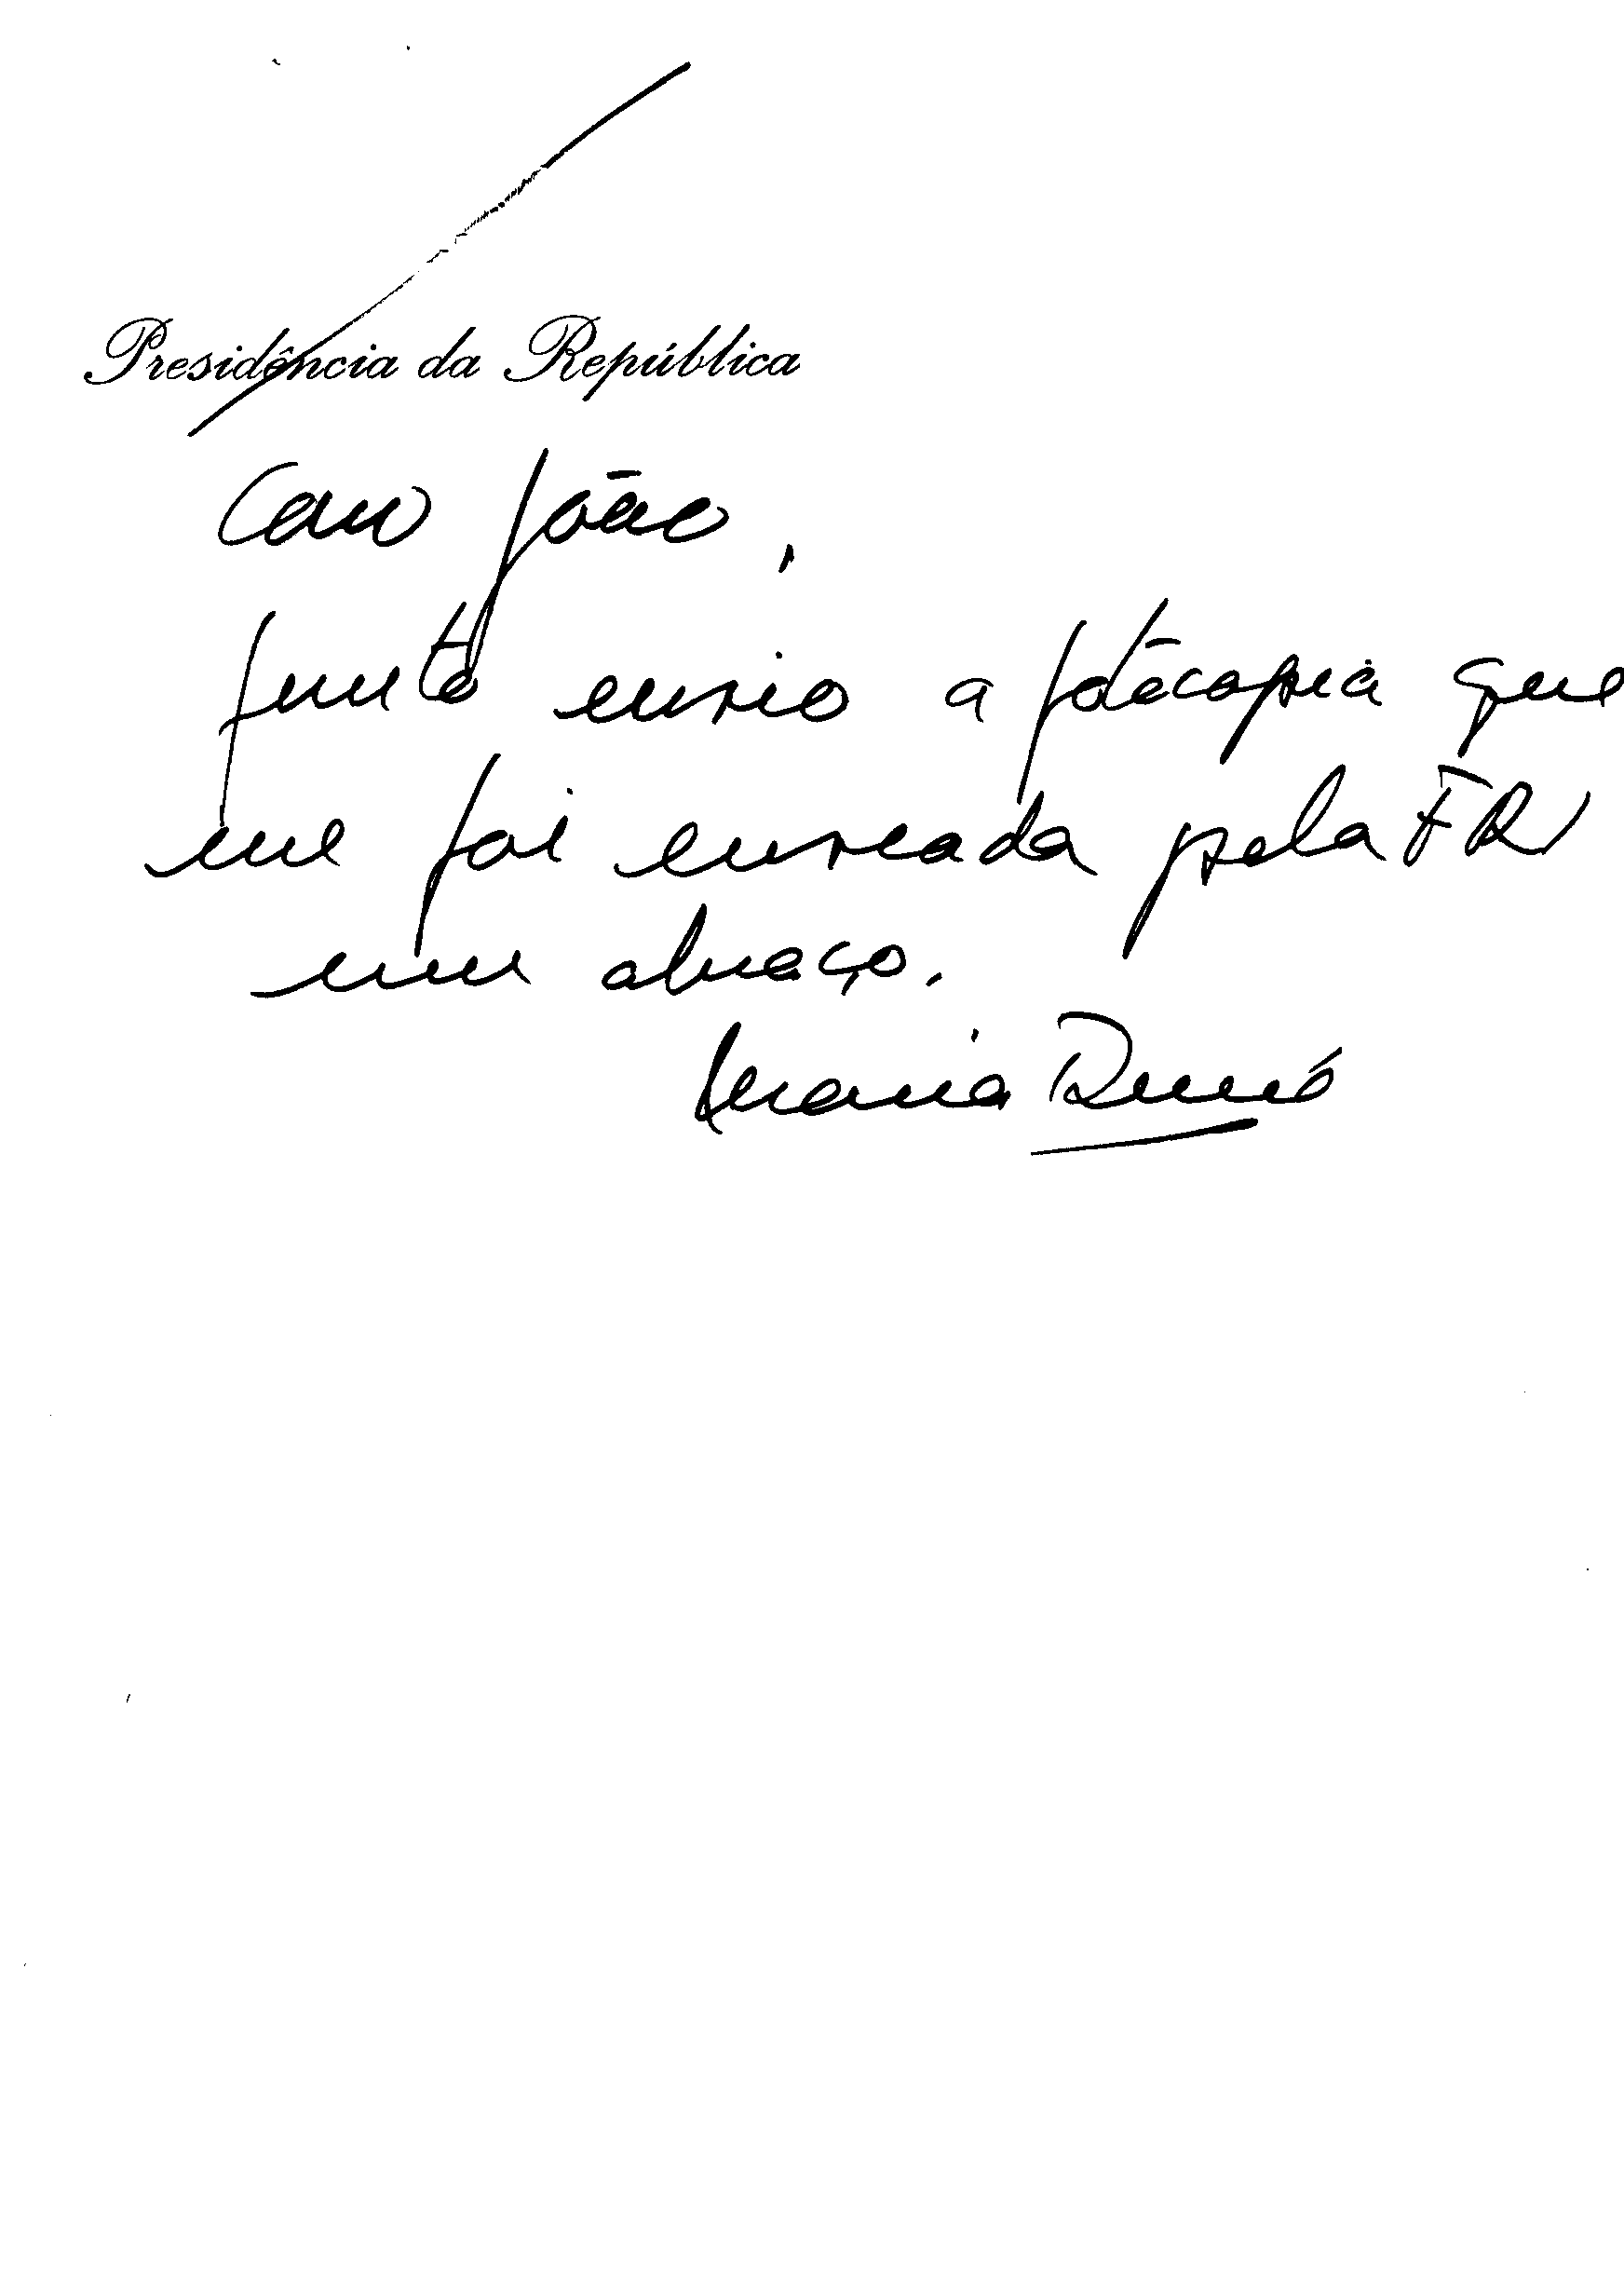 Presidência da República
Caro João,
Junto envio a fotocopia que
me foi enviada pela FR
um abraço.
Maria